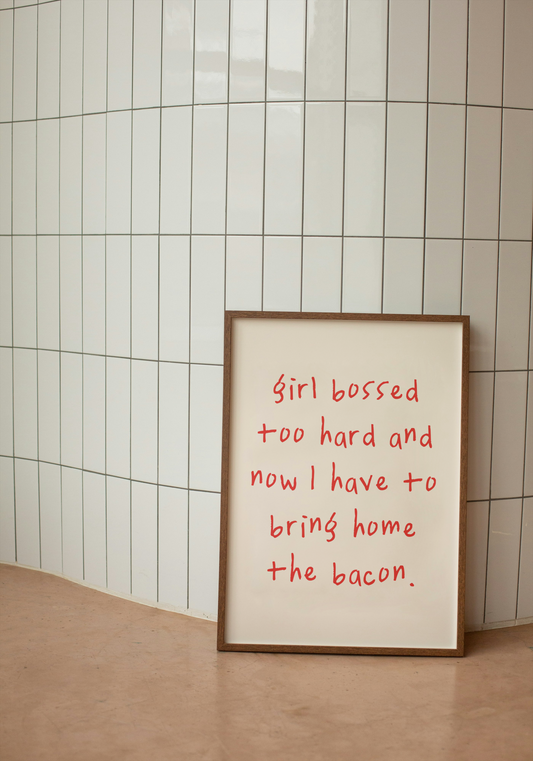 girl bossed
too hard and
now I have to
bring home
the bacon.